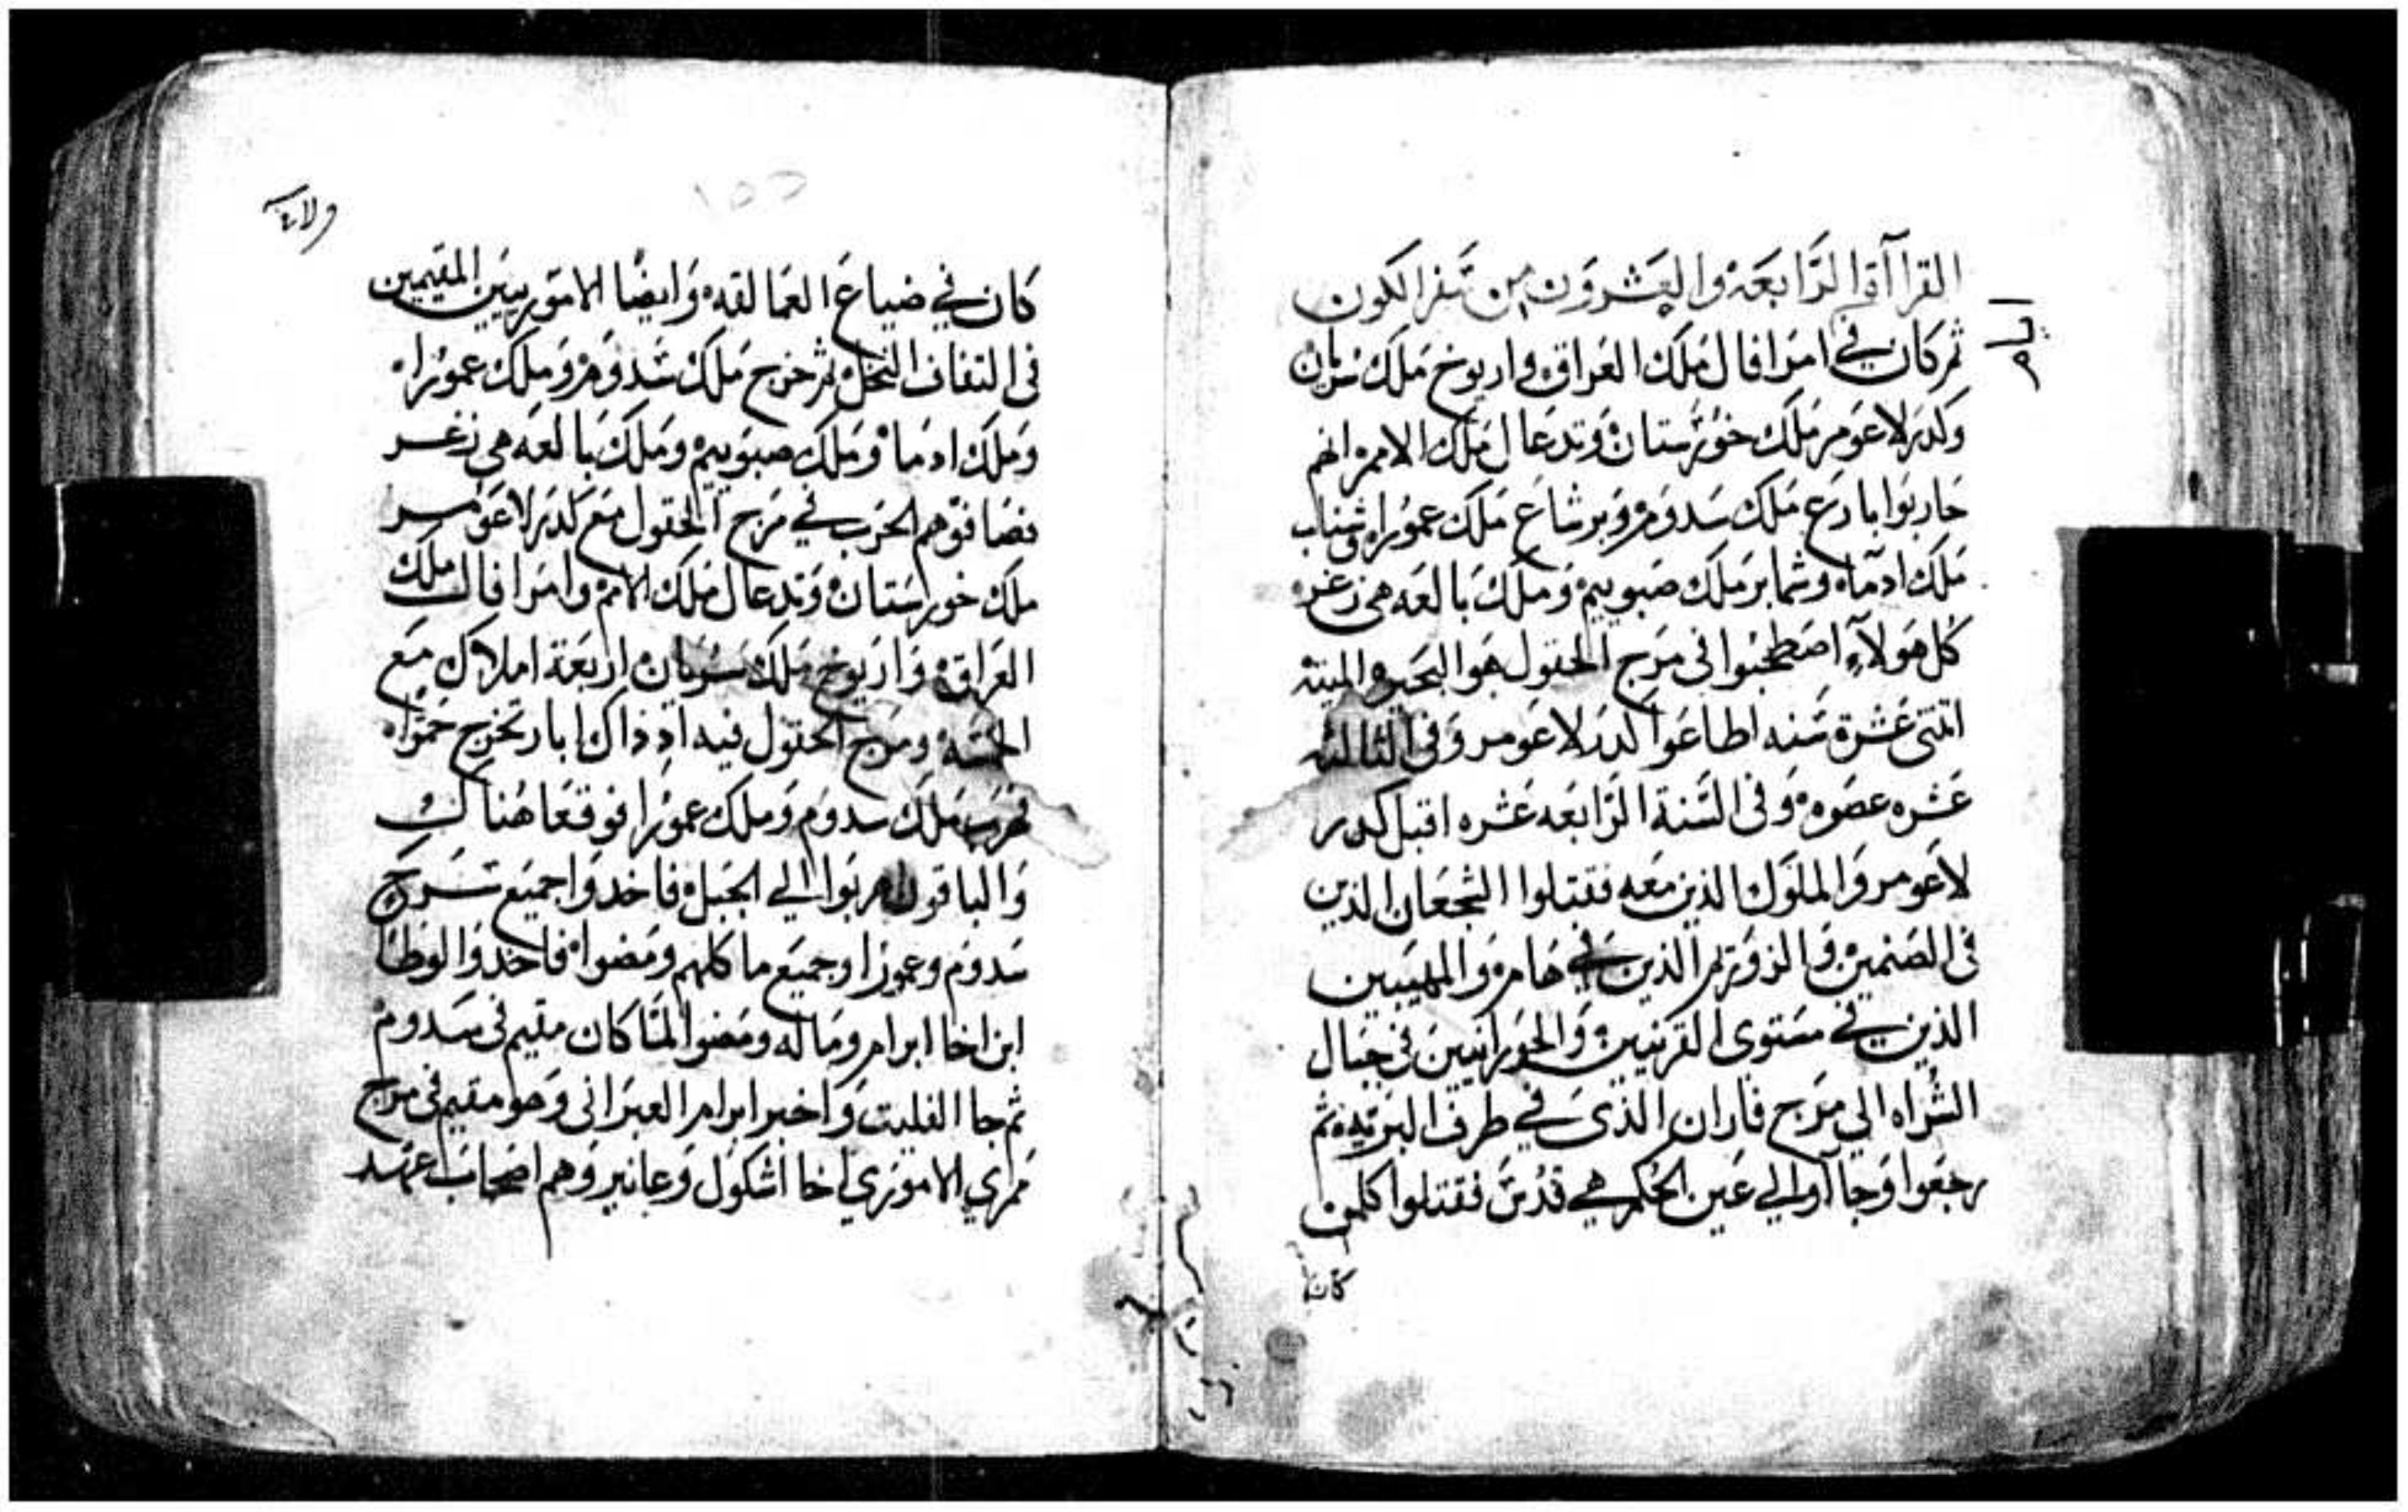 القراآة الرابعه والعشرون من سفر الكون
ثم كان في امرافال ملك العراق واريوخ ملك سريان
وكدرلاعومر ملك خوزستان وتدعال ملك الامم انهم
حاربوا بارع ملك سدوم وبرشاع ملك عموراه وشناب
ملك ادماه وشمابر ملك صبوييم وملك بالعه هي زغره
كل هولآء اصطحبوا في مرج الحقول هو البحيره الميته
اثنتى عشرة سنه اطاعوا كدرلاعومر وفي الثالثه
عشره عصوه وفي السنة الرابعه عشره اقبل كدر
لاعومر والملوك الذين معه فقتلوا الشجعان الذين
في الصنمين والزوزيم الذين في هامه والمهيبين
الذين في مستوى القريتين والحورانيين في جبال
الشراه الي مرج فاران الذى في طرف البريه ثم
رجعوا وجاآوا الي عين الحكم هي قدس فقتلوا كلمن
كان
كان في ضياع العمالقه وايضا الاموريين المقيمين
في التفاف النخل ثم خرج ملك سدوم وملك عموراه
وملك ادماه وملك صبوييم وملك بالعه هي زغر
فصافوهم الحرب في مرج الحقول مع كدرلاعومر
ملك خورستان وتدعال ملك الامم وامرافال ملك
العراق واريوخ ملك سريان اربعة املاك مع
الخمسه ومرج الحقول فيه اد داك ابار تخرج حمراه
فهرب ملك سدوم وملك عمورا فوقعا هناك
والباقون هربوا الي الجبل فاخدوا جميع سرح
سدوم وعمورا وجميع ماكلهم ومضوا فاخدوا لوطا
ابن اخا ابرام وماله ومضوا لما كان مقيم في سدوم
ثم جا الفليت واخبر ابرام العبرانى وهو مقيم في مرج
ممري الاموري اخا اشكول وعانير وهم اصحاب عهد